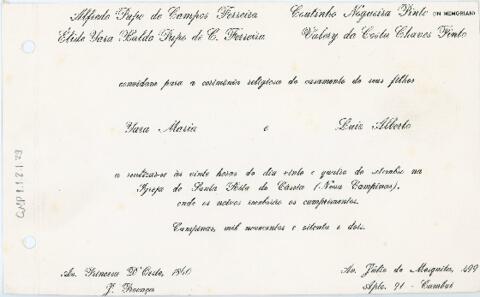 Alfredo Pupo de Campos Ferreira
Coutinho Nogueira Pinto (IN MEMORIAM)
Élida Yara Kalda Pupo de C. Ferreira
Valery da Costa Chaves Pinto
convidam para a cerimônia religiosa do casamento de seus filhos
Yara Maria e Luiz Alberto
a realizar-se às vinte horas do dia vinte e quatro de abril na
Igreja de Santa Rita de Cássia (Nova Campinas).
onde os noivos receberão os cumprimentos.
Campinas, mil novecentos e oitenta e dois.
Av. Princesa D'Oeste, 1840
Av. Júlio de Mesquita, 499
J. Proença
Apto. 91 - Cambuí
CMP 1.1.2.1.29